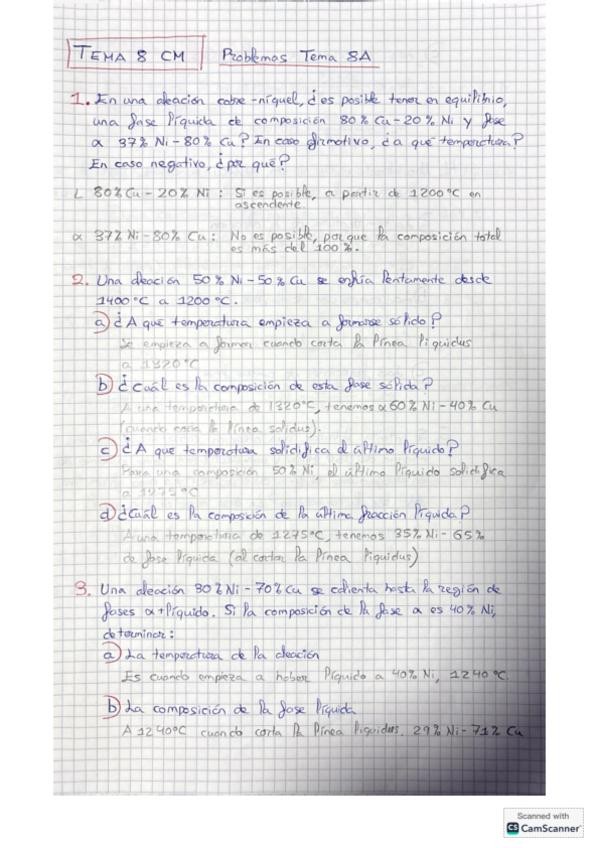 TEMA 8 CM Problemas Tema 8A
1. En una aleación cobre-níquel, ¿es posible tener en equilibrio,
una fase líquida de composición 80% Cu-20% Ni y fase
α 37% Ni-80% Cu? En caso afirmativo, ¿a qué temperatura?
En caso negativo, ¿por qué?
L 80% Cu-20% Ni: Si es posible, a partir de 1200°C en
ascendente.
α 37% Ni-80% Cu: No es posible, porque la composición total
es más del 100%.
2. Una aleación 50% Ni-50% Cu se enfría lentamente desde
1400°C a 1200°C.
a) ¿A que temperatura empieza a formarse sólido?
Se empieza a formar cuando corta la línea liquidus
a 1320°C
b) ¿Cuál es la composición de esta fase sólida?
A una temperatura de 1320°C, tenemos α 60% Ni-40% Cu
(cuando corta la línea solidus).
c) ¿A que temperatura solidifica el último líquido?
Para una composición 50% Ni, el último líquido solidifica
a 1275°C
d) ¿Cuál es la composición de la última fracción líquida?
A una temperatura de 1275°C, tenemos 35% Ni-65%
de fase líquida (al cortar la línea liquidus)
3. Una aleación 30% Ni-70% Cu se calienta hasta la región de
fases α+líquido. Si la composición de la fase α es 40% Ni,
determinar:
a) La temperatura de la aleación
Es cuando empieza a haber líquido a 40% Ni, 1240°C.
b) La composición de la fase líquida
A 1240°C cuando corta la línea liquidus. 29% Ni-71% Cu
Scanned with
CS CamScanner